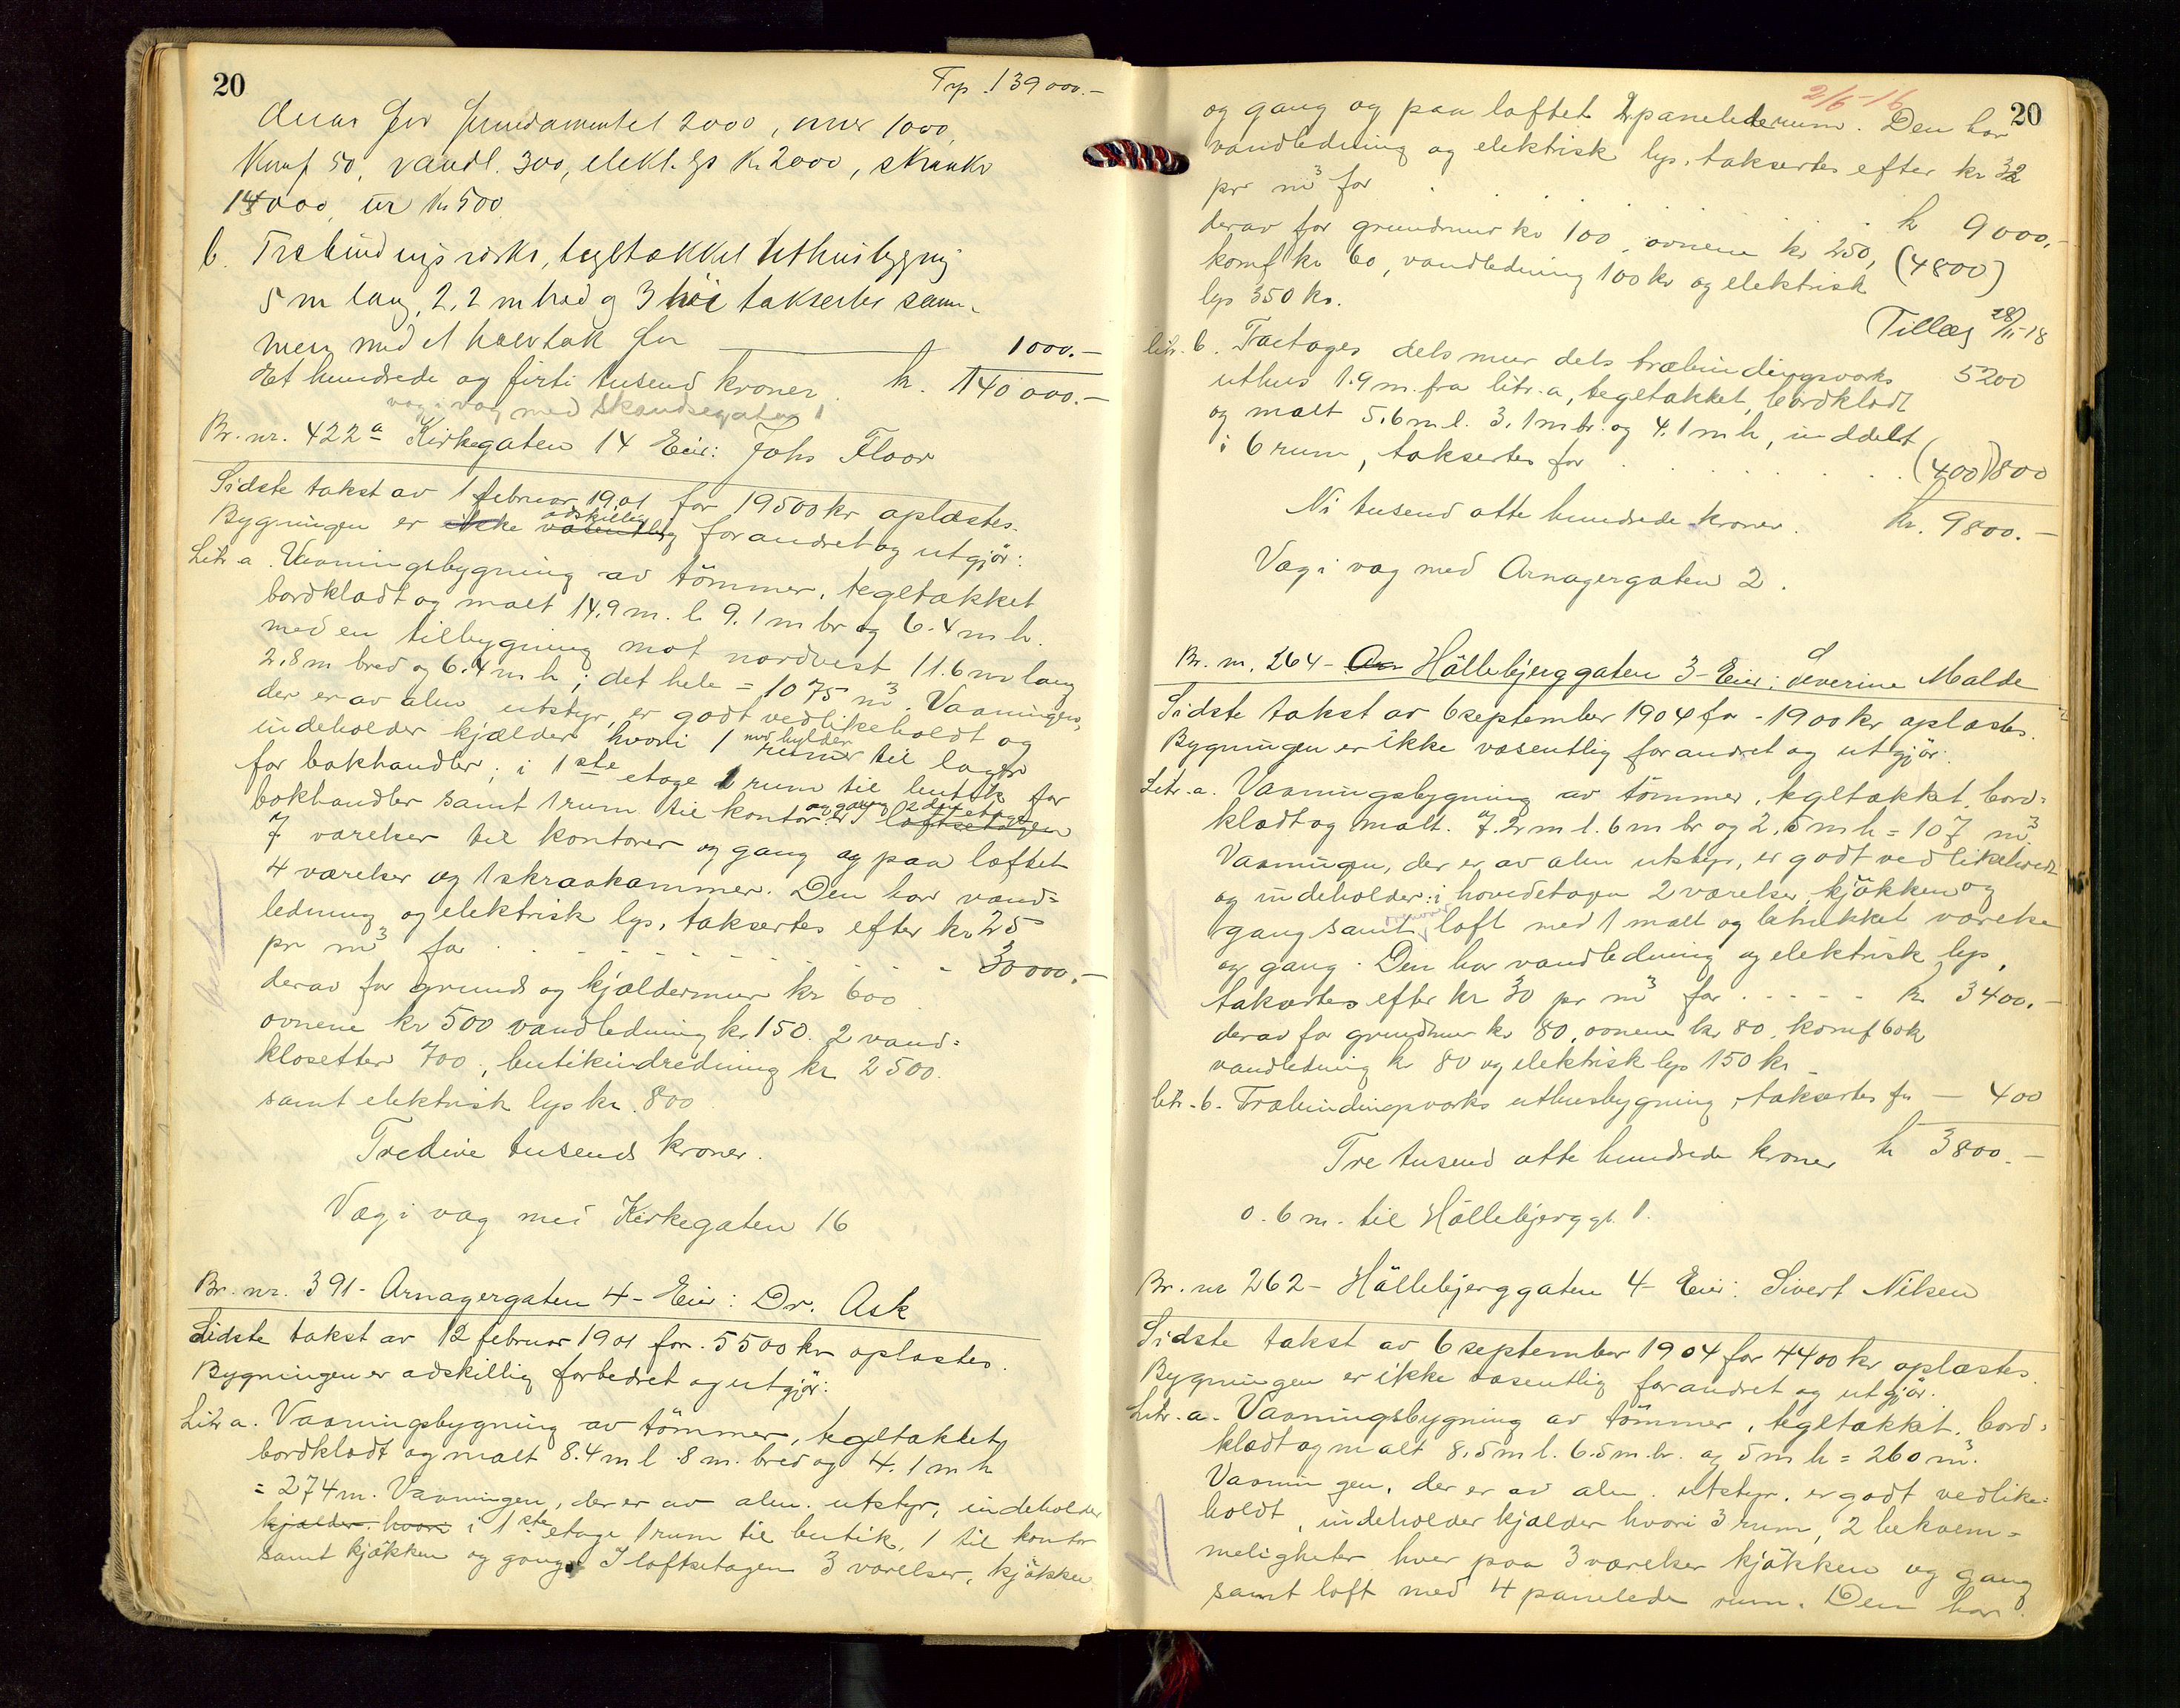 20
Trp. 139000.-
derav for fundamentet 2000, mur 1000,
Kmf 50, vandl. 300, elekt. lys Kr 2000, skranke
14000, ur Kr 500
b. Træbindingsverks, tegltækket uthusbygng
5 m lang, 2,2 m bred og 3 høi taksertes sam-
men med et halvtak for 1000.-
Et hundrede og firti tusend kroner. kr. 140000.-
væg i væg med Skandsegaten 1
Br. nr. 422 a Kirkegaten 14 Eier: Johs Floor
Sidste takst av 1 februar 1901 for 19500 kr oplæstes.
Bygningen er ikke væsentlig adskillig forandret og utgjör:
Litr a. Vaaningsbygning av tömmer, tegltækket
bordklædt og malt 14.9 m. l. 9.1 m br og 6.4 m h.
med en tilbygning mot nordvest 11.6 m lang
2.8 m bred og 6.4 m h; det hele = 1075 m³. Vaaningen,
der er av alm utstyr, er godt vedlikeholdt og
indeholder kjælder hvori 1 rum med hylder til lager
for bokhandler; i 1ste etage 1 rum til butik for
bokhandler samt 1 rum til kontor og gang. I loftsetagen 2den etage
7 værelser til kontorer og gang og paa loftet
4 værelser og 1 skraakammer. Den har vand=
ledning og elektrisk lys, taksertes efter kr 25
pr m³ for . . . . . . . . . . 30000.-
derav for grund og kjældermur kr 600
ovnene kr 500 vandledning kr 150. 2 vand=
klosetter 700, butikindredning kr 2500.
samt elektrisk lys kr. 800
Tredive tusend kroner.
Væg i væg med Kirkegaten 16
Br. nr. 391 - Arnagergaten 4 - Eier: Dr. Ask
Sidste takst av 12 februar 1901 for 5500 kr oplæstes.
Bygningen er adskillig forbedret og utgjör:
Litr a. Vaaningsbygning av tömmer, tegltækket,
bordklædt og malt 8.4 m l. 8 m. bred og 4.1 m h
= 274 m. Vaaningen, der er av alm. utstyr, indeholder
kjælder, hvori i 1ste etage 1 rum til butik, 1 til kontor
samt kjökken og gang. I loftsetagen 3 værelser, kjökken
2/6-16
20
og gang og paa loftet 2 panelede rum. Den har
vandledning og elektrisk lys, taksertes efter kr 32
pr m³ for . . . . . . . . kr 9000.-
derav for grundmur kr 100, ovnene kr 250, (4800)
komf kr 60, vandledning 100 kr og elektrisk
lys 350 kr.
Tillæg 28/11-18
5200
litr. b. Toetages dels mur dels træbindingsverks
uthus 1.9 m. fra litr. a, tegltækket, bordklædt
og malt 5.6 m l. 3.1 m br. og 4.1 m h, inddelt
i 6 rum, taksertes for . . . . . . . (400) 800
Ni tusend otte hundrede kroner. Kr. 9800.-
Væg i væg med Arnagergaten 2.
Br. nr. 264 - Ar Hällebjerggaten 3 - Eier: Severine Malde
Sidste takst av 6 september 1904 for - 1900 kr oplæstes.
Bygningen er ikke væsentlig forandret og utgjör:
Litr. a. Vaaningsbygning av tömmer, tegltækket, bord=
klædt og malt. 7.2 m l. 6 m br og 2.5 m h = 107 m³
Vaaningen, der er av alm utstyr, er godt vedlikeholdt
og indeholder: i hovedetagen 2 værelser, kjökken og
gang samt loft med 1 malt og betrukket værelse
og gang. Den har vandledning og elektrisk lys,
taksertes efter kr 30 pr m³ for . . . . . kr 3400.-
derav for grundmur kr 80, ovnene kr 80, komf 60 kr
vandledning kr 80 og elektrisk lys 150 kr.
litr. b. Træbindingsverks uthusbygning, taksertes for — 400
Tre tusend otte hundrede kroner kr 3800.-
0.6 m. til Hällebjerggt. 1.
Br. nr 262 - Hällebjerggaten 4 - Eier: Sivert Nilsen
Sidste takst av 6 september 1904 for 4400 kr oplæstes.
Bygningen er ikke væsentlig forandret og utgjör:
Litr. a. Vaaningsbygning av tömmer, tegltækket, bord=
klædt og malt 8.5 m l. 6.5 m. br. og 5 m h = 260 m³.
Vaaningen, der er av alm. utstyr, er godt vedlike=
holdt, indeholder kjælder hvori 3 rum, 2 bekvem=
meligheter hver paa 3 værelser kjökken og gang
samt loft med 4 panelede rum. Den har